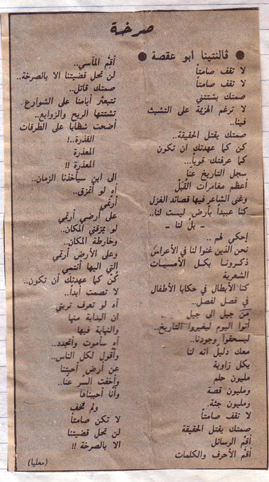 صرخة
● ڤالنتينا أبو عقصة ●
لا تقف صامتاً
لا تقف صامتاً
صمتك يشتتني
لا ترغم الهزيمة على التشبث
فينا.
صمتك يقتل الحقيقة..
كن كما عهدتك ان تكون
كما عرفتك قوياً...
سجل التاريخ عنا
أعظم مغامرات القبل
وغنى الشاعر فيها قصائد الغزل
كنا عبيداً بأرض ليست لنا..
- بل لنا -
إحكي لهم ..
نحن الذين غنوا لنا في الأعراس
ذكرونا بكل الأمسيات
الشعرية
كنا الأبطال في حكايا الأطفال
في فصل لفصل.
من جيل الى جيل ..
أتوا اليوم ليغيروا التاريخ..
ليسحقوا وجودنا..
معك دليل انه لنا
بكل زاوية
مليون حلم
ومليون قصة
ومليون جثة
لا تقف صامتاً
صمتك يقتل الحقيقة
أقم الرسائل
أقم الأحرف والكلمات
أقم المآسي..
لن تحل قضيتنا الا بالصرخة..
صمتك قاتل..
تتبعثر أيامنا على الشوارع
تشتتها الريح والزوابع..
أضحت شظايا على الطرقات
القذرة..!
المعذرة
المعذرة !!
الى اين سيأخذنا الزمان..
آه لو أتمزق..
أرتمي
على أرضي أرتمي
لو يمزقني المكان..
وخارطة المكان..
وعلى الأرض أرتمي
التي اليها أنتمي
كن كما عهدتك ان تكون..
لا تصمت أبداً..
آه لو تعرف تربتي
ان البداية منها
والنهاية فيها
آه سأموت وأتجدد..
وأقول لكل الناس..
عن أرض أحببتنا
وأخفت السر عنا..
وأنا أحببناها
ولم تخف
لا تكن صامتاً
لن تحل قضيتنا
الا بالصرخة !!
(معليا)